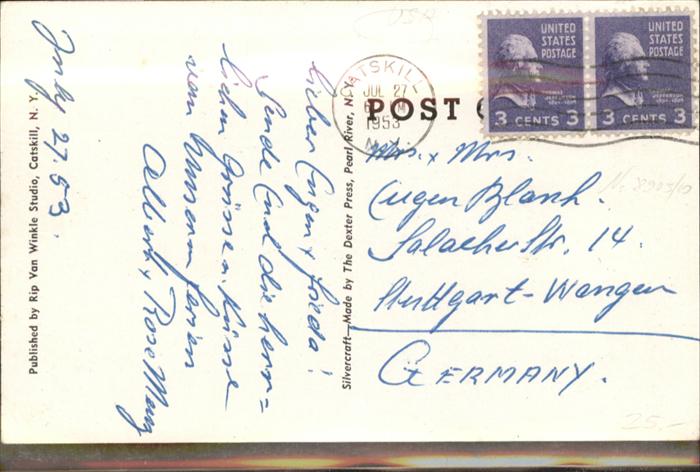 July 27.53.
Lieber Eugen & Frieda!
Sende Euch die herz=
lichen Grüsse & Küsse
von unseren Ferien
Albert & Rose Mary
Published by Rip Van Winkle Studio, Catskill, N. Y.
Silvercraft—Made by The Dexter Press, Pearl River, N.Y.
POST
CATSKILL
JUL 27
PM
1953
N.Y.
UNITED
STATES
POSTAGE
THOMAS
JEFFERSON
3 CENTS 3
UNITED
STATES
POSTAGE
THOMAS
JEFFERSON
3 CENTS 3
Mrs. & Mrs.
Eugen Blank.
Salacher Str. 14.
Stuttgart-Wangen
GERMANY.
USA
25.-